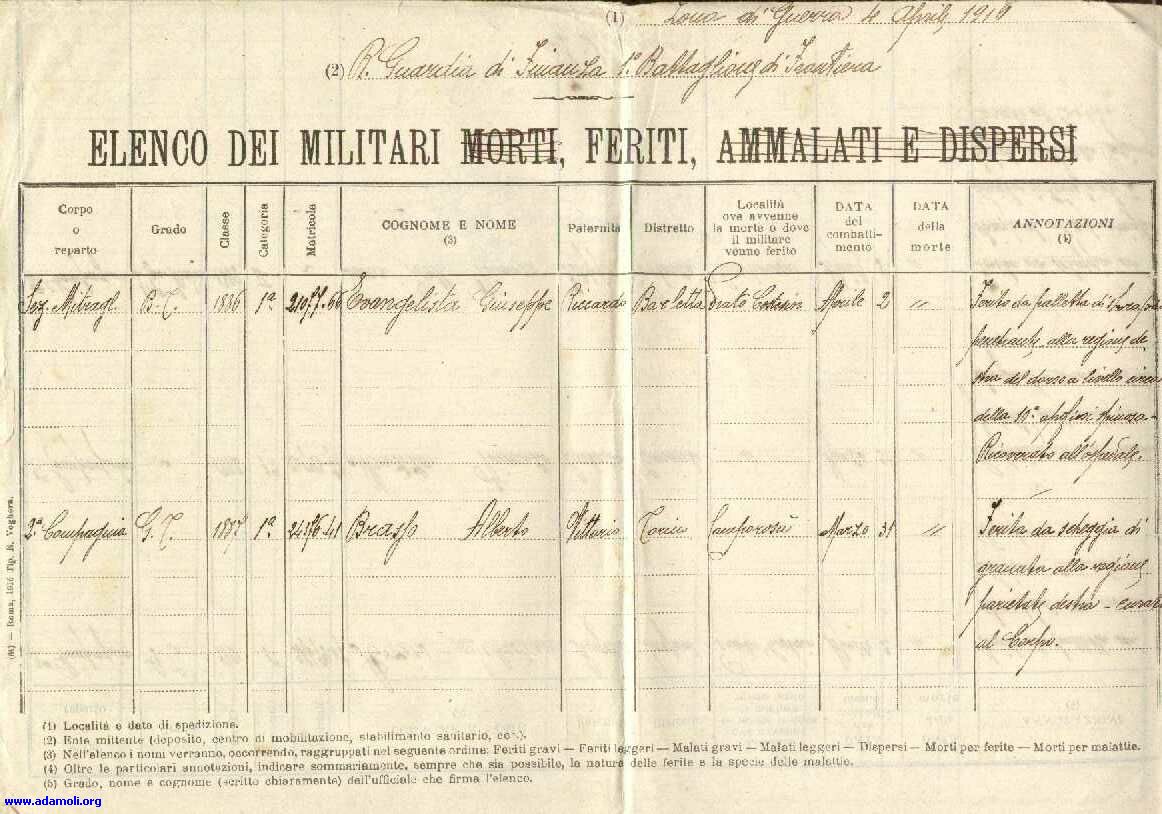 (1) Zona di Guerra 4 Aprile 191
(2) R. Guardia di Finanza 1° Battaglione di Frontiera
ELENCO DEI MILITARI MORTI, FERITI, AMMALATI E DISPERSI
Corpo o reparto
Grado
Classe
Categoria
Matricola
COGNOME E NOME (3)
Paternità
Distretto
Località ove avvenne la morte o dove il militare venne ferito
DATA del combattimento
DATA della morte
ANNOTAZIONI (4)
Sez. Mitragl. B. T. 1886 1ª Evangelista Giuseppe Riccardo Barletta Prato Aprile 2 "
Ferito da palletta di
penetrante alla regione de-
stra del dorso a livello circa
della 10ª apofisi spinosa -
Ricoverato all'ospedale.
2ª Compagnia G. T. 1887 1ª Brasso Alberto Vittorio Torino Marzo 31 "
Ferita da scheggia di
granata alla regione
parietale destra - curato
al Corpo.
(1) Località e data di spedizione.
(2) Ente mittente (deposito, centro di mobilitazione, stabilimento sanitario, ecc.).
(3) Nell'elenco i nomi verranno, occorrendo, raggruppati nel seguente ordine: Feriti gravi — Feriti leggeri — Malati gravi — Malati leggeri — Dispersi — Morti per ferite — Morti per malattie.
(4) Oltre le particolari annotazioni, indicare sommariamente, sempre che sia possibile, la natura delle ferite e la specie delle malattie.
(5) Grado, nome e cognome (scritto chiaramente) dell'ufficiale che firma l'elenco.
Roma, 1916 Tip. E. Voghera.
www.adamoli.org